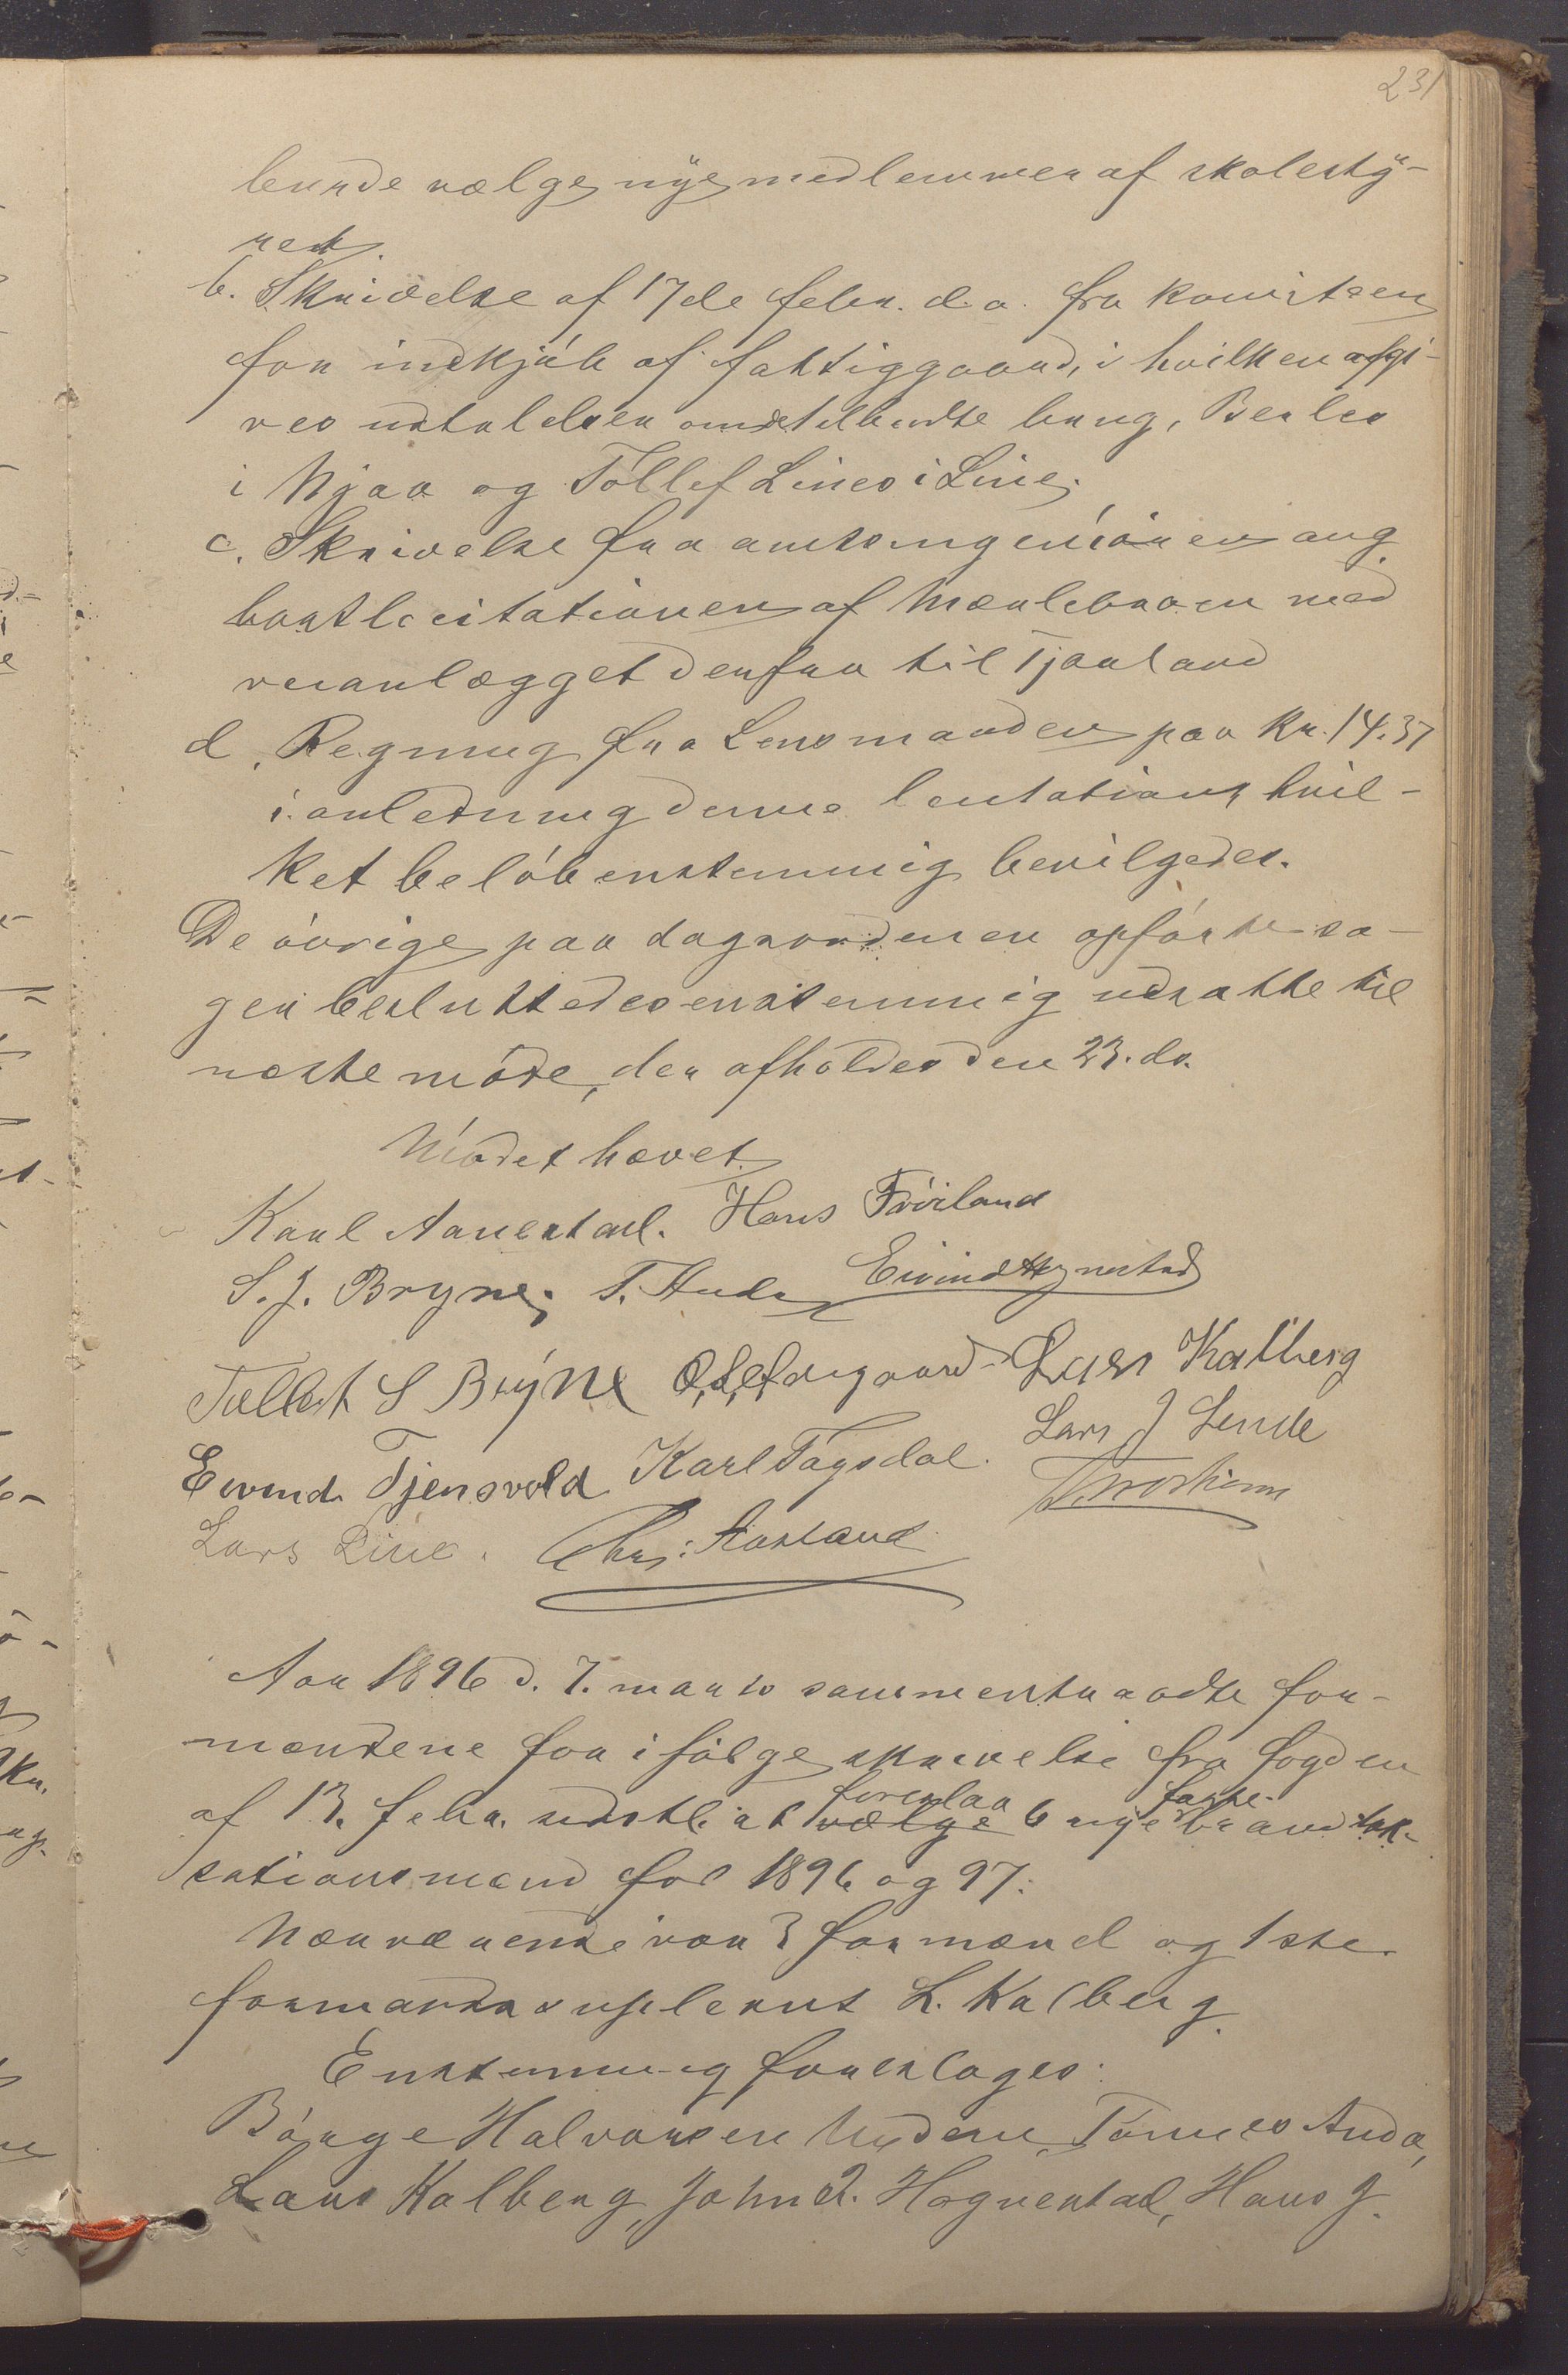 231
burde vælge nye medlemmer af skolesty-
ret.
b. Skrivelse af 17de febr. d.a. fra komiteen
for indkjøb af fattiggaard, i hvilken afgi-
ves udtalelser om de tilbudte brug,
i Njaa og Tollef Lines i Line.
c. Skrivelse fra amtsingeniøren ang.
bortlicitationen af Mærlebroen med
veianlægget derfra til Tjaaland
d. Regning fra Lensmanden paa Kr. 14.37
i anledning denne hvil-
ket beløb enstemmig bevilgedes.
De øvrige paa dagsordenen opførte sa-
ger besluttedes enstemmig udsatte til
næste møde, der afholdes den 23. ds.
Mødet hævet.
Karl Aanestad. Hans Frøiland
S. J. Bryne. T. Anda Eivind Hognestad
Tollef S Bryne Lars Kalberg
Lars J Lende
Eivind Tjensvold Karl Fagsdal.
Lars Line. Chr: Aasland
Aar 1896 d. 7. marts sammentraadte for-
mændene for ifølge skrivelse fra fogden
foreslaa faste
af 13. febr. udstl. at vælge 6 nye brandtak-
sationsmænd for 1896 og 97.
Nærværende var 3 formænd og 1ste
formandssuplent L. Kalberg.
Enstemmig foresloges:
Børge Halvorsen Undem, Tønnes Anda,
Lars Kalberg, John O. Hognestad, Hans J.